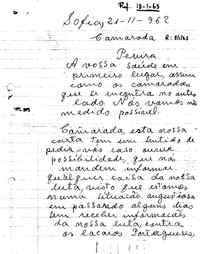 Ref. 18-1-63
Sofia, 21-11-962
Camarada
Pereira
A vossa saúde em
primeiro lugar, assim
como os camaradas
que se encontra no outro
lado. Nós vamos na
medida possivel.
Camarada esta nossa
carta tem um sentido de
pedir, não caso
possibilidades, que nos
mandem informar
qualquer coisa da nossa
luta, visto que estamos
numa situação angustiosa
em passarado alguns dias
sem receber informação
da nossa luta contra
os lacaios Portugueses